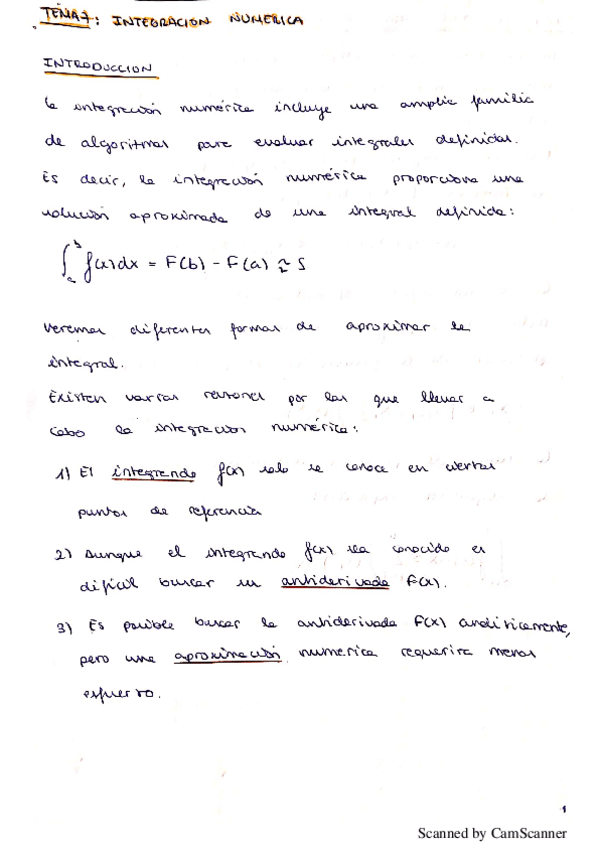 TEMA 7: INTEGRACION NUMERICA
INTRODUCCION
La integración numérica incluye una amplia familia
de algoritmos para evaluar integrales definidas.
Es decir, la integración numérica proporciona una
solución aproximada de una integral definida:
∫ₐᵇ f(x)dx = F(b) - F(a) ≈ S
Veremos diferentes formas de aproximar la
integral.
Existen varias razones por las que llevar a
cabo la integración numérica:
1) El integrando f(x) solo se conoce en ciertos
puntos de referencia
2) Aunque el integrando f(x) sea conocido es
difícil buscar su antiderivada F(x).
3) Es posible buscar la antiderivada F(x) analíticamente,
pero una aproximación numerica requerira menos
esfuerzo.
1
Scanned by CamScanner